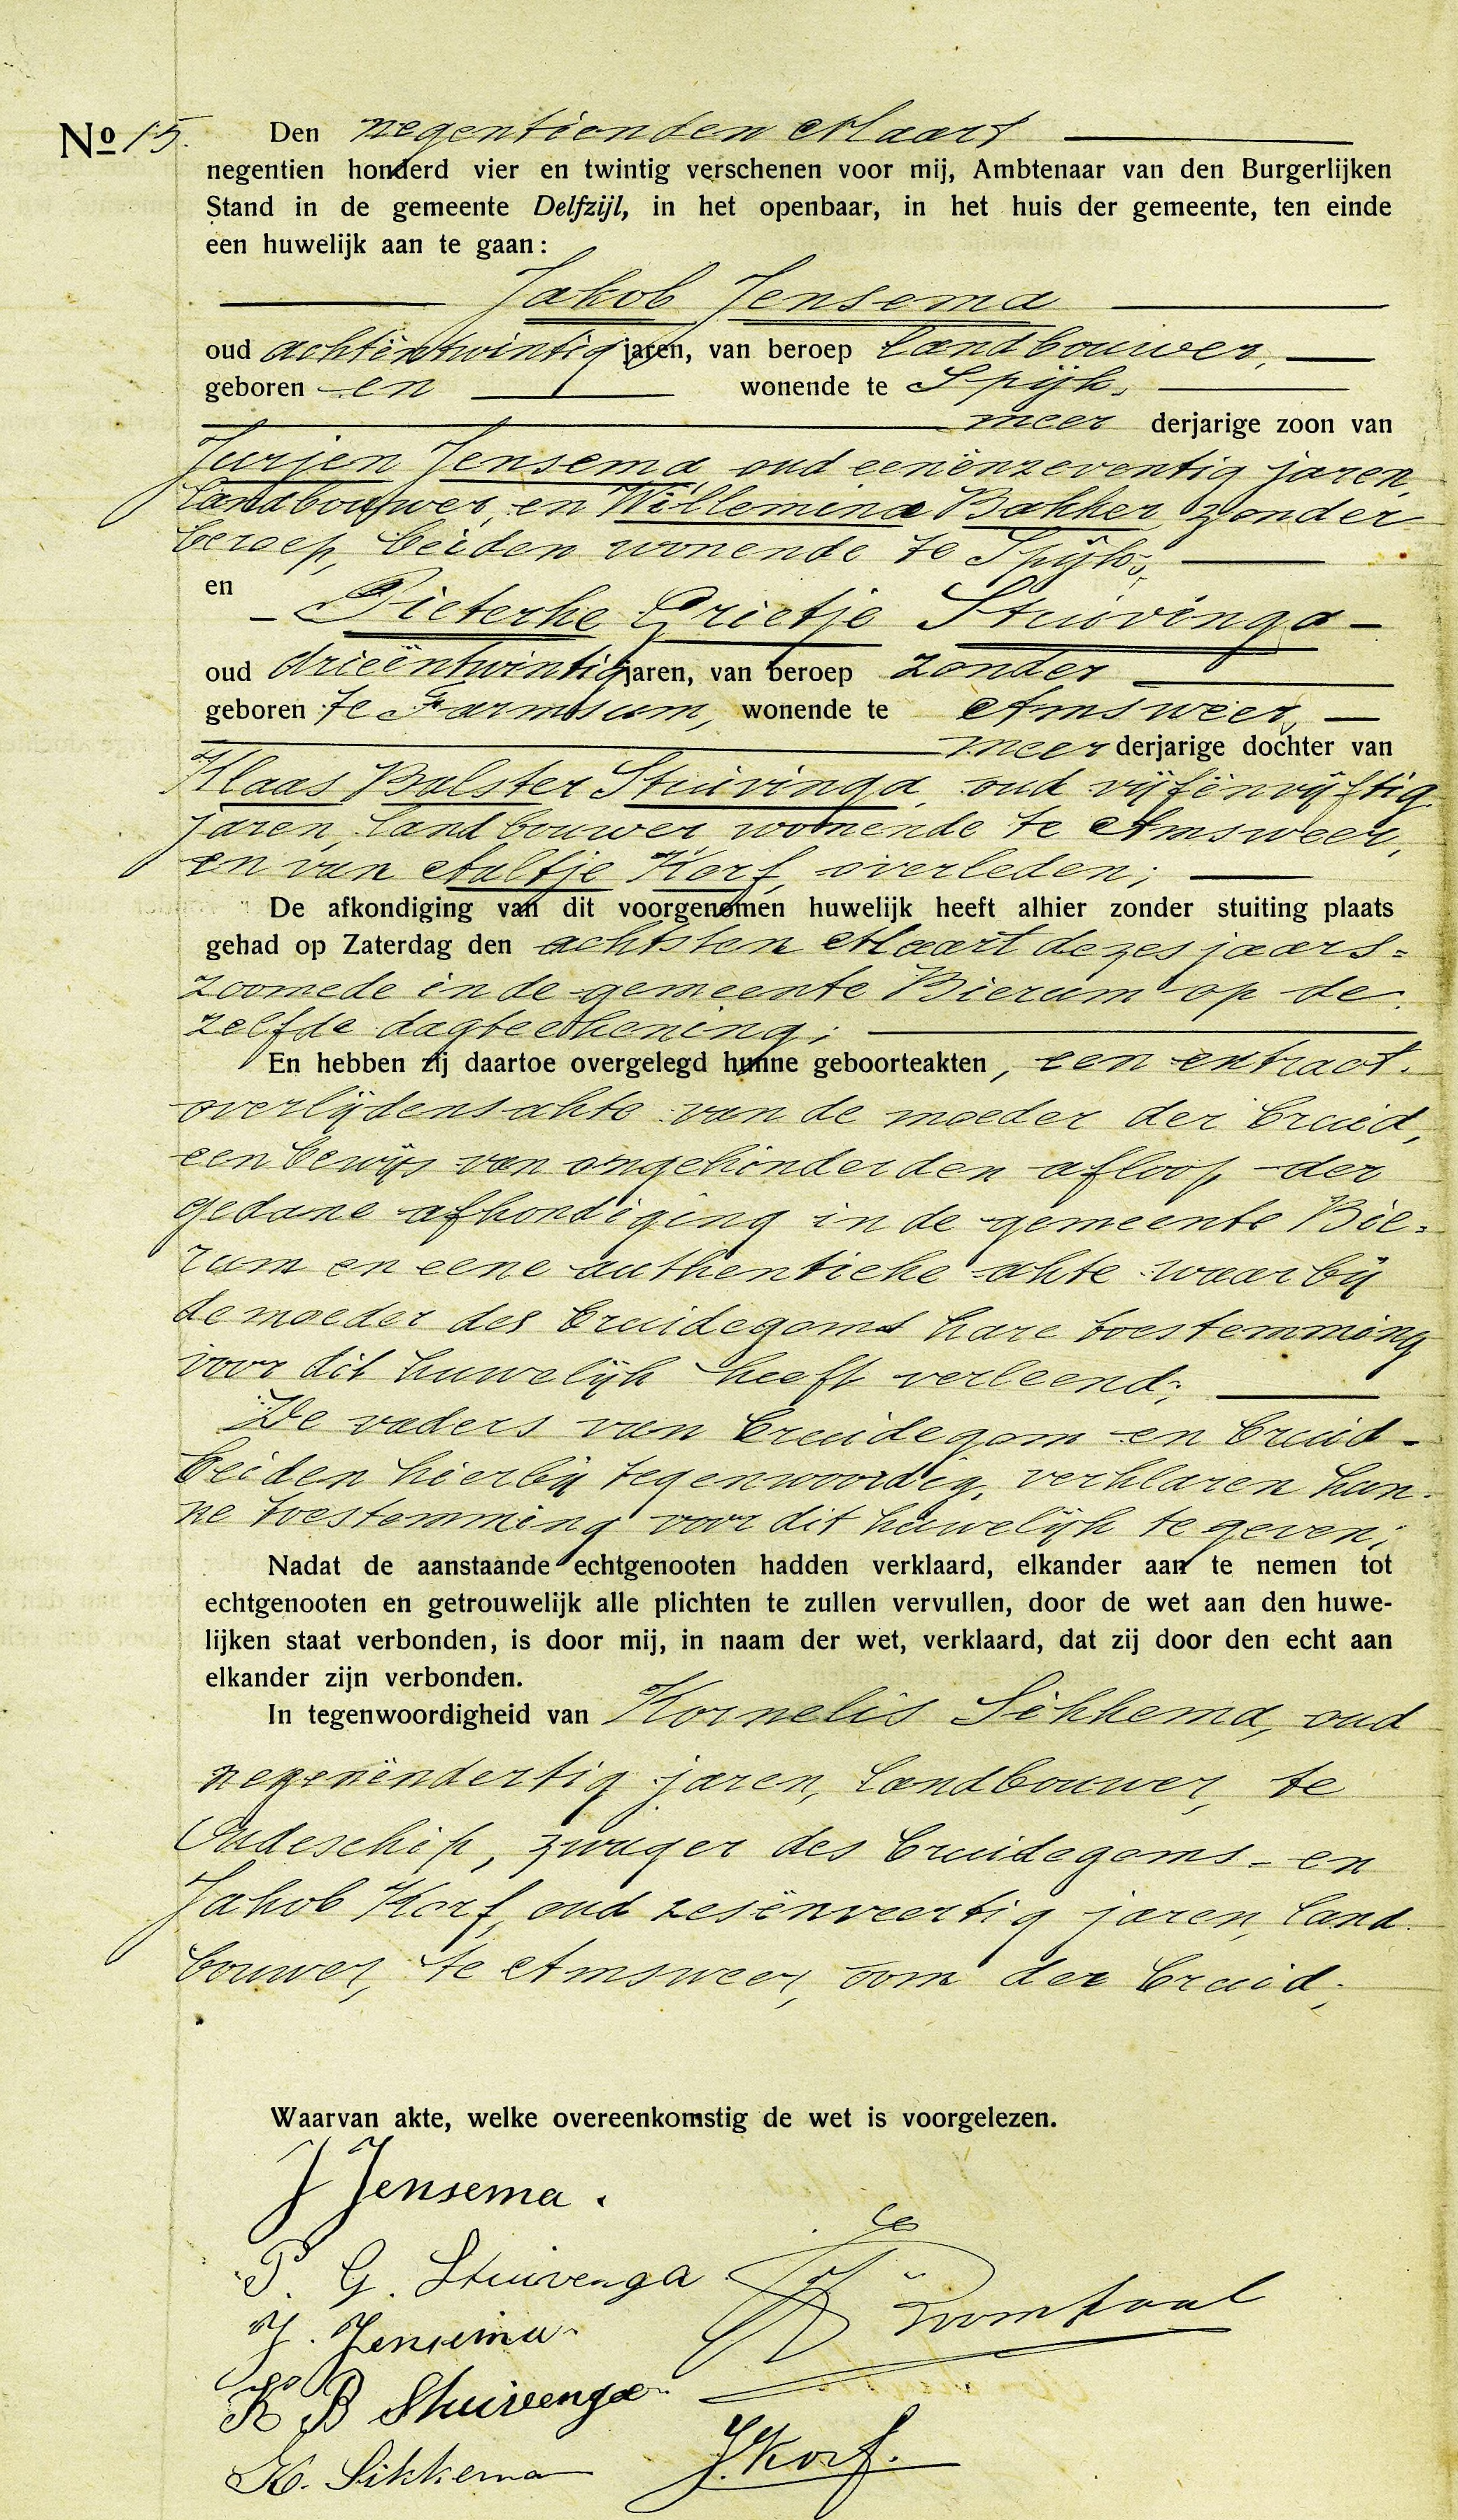 No 15. Den negentienden Maart
negentien honderd vier en twintig verschenen voor mij, Ambtenaar van den Burgerlijken
Stand in de gemeente Delfzijl, in het openbaar, in het huis der gemeente, ten einde
een huwelijk aan te gaan:
Jakob Jensema
oud achtëntwintig jaren, van beroep landbouwer,
geboren en wonende te Spijk,
meer derjarige zoon van
Jurjen Jensema, oud eenënzeventig jaren,
landbouwer, en Willemina Bakker, zonder
beroep, beiden wonende te Spijk;
en Pieterke Grietje Stuivinga
oud drieëntwintig jaren, van beroep zonder
geboren te Farmsum, wonende te Amsweer,
meer derjarige dochter van
Klaas Bolster Stuivinga, oud vijfënvijftig
jaren, landbouwer, wonende te Amsweer,
en van Aaltje Korf, overleden;
De afkondiging van dit voorgenomen huwelijk heeft alhier zonder stuiting plaats
gehad op Zaterdag den achtsten Maart dezes jaars=
zoomede in de gemeente Bierum op de
zelfde dagteekening;
En hebben zij daartoe overgelegd hunne geboorteakten, een extract.
overlijdensakte van de moeder der bruid,
een bewijs van ongehinderden afloop der
gedane afkondiging in de gemeente Bie=
rum en eene authentieke akte waarbij
de moeder des bruidegoms hare toestemming
voor dit huwelijk heeft verleend;
De vaders van bruidegom en bruid
beiden hierbij tegenwoordig, verklaren hun-
ne toestemming voor dit huwelijk te geven;
Nadat de aanstaande echtgenooten hadden verklaard, elkander aan te nemen tot
echtgenooten en getrouwelijk alle plichten te zullen vervullen, door de wet aan den huwe-
lijken staat verbonden, is door mij, in naam der wet, verklaard, dat zij door den echt aan
elkander zijn verbonden.
In tegenwoordigheid van Kornelis Sikkema, oud
negenëndertig jaren, landbouwer, te
Oudeschip, zwager des bruidegoms en
Jakob Korf, oud zesënveertig jaren, land
bouwer, te Amsweer, oom der bruid;
Waarvan akte, welke overeenkomstig de wet is voorgelezen.
J Jensema.
P. G. Stuivenga
J. Jensema
K B Stuivenga
K. Sikkema
J. Korf.